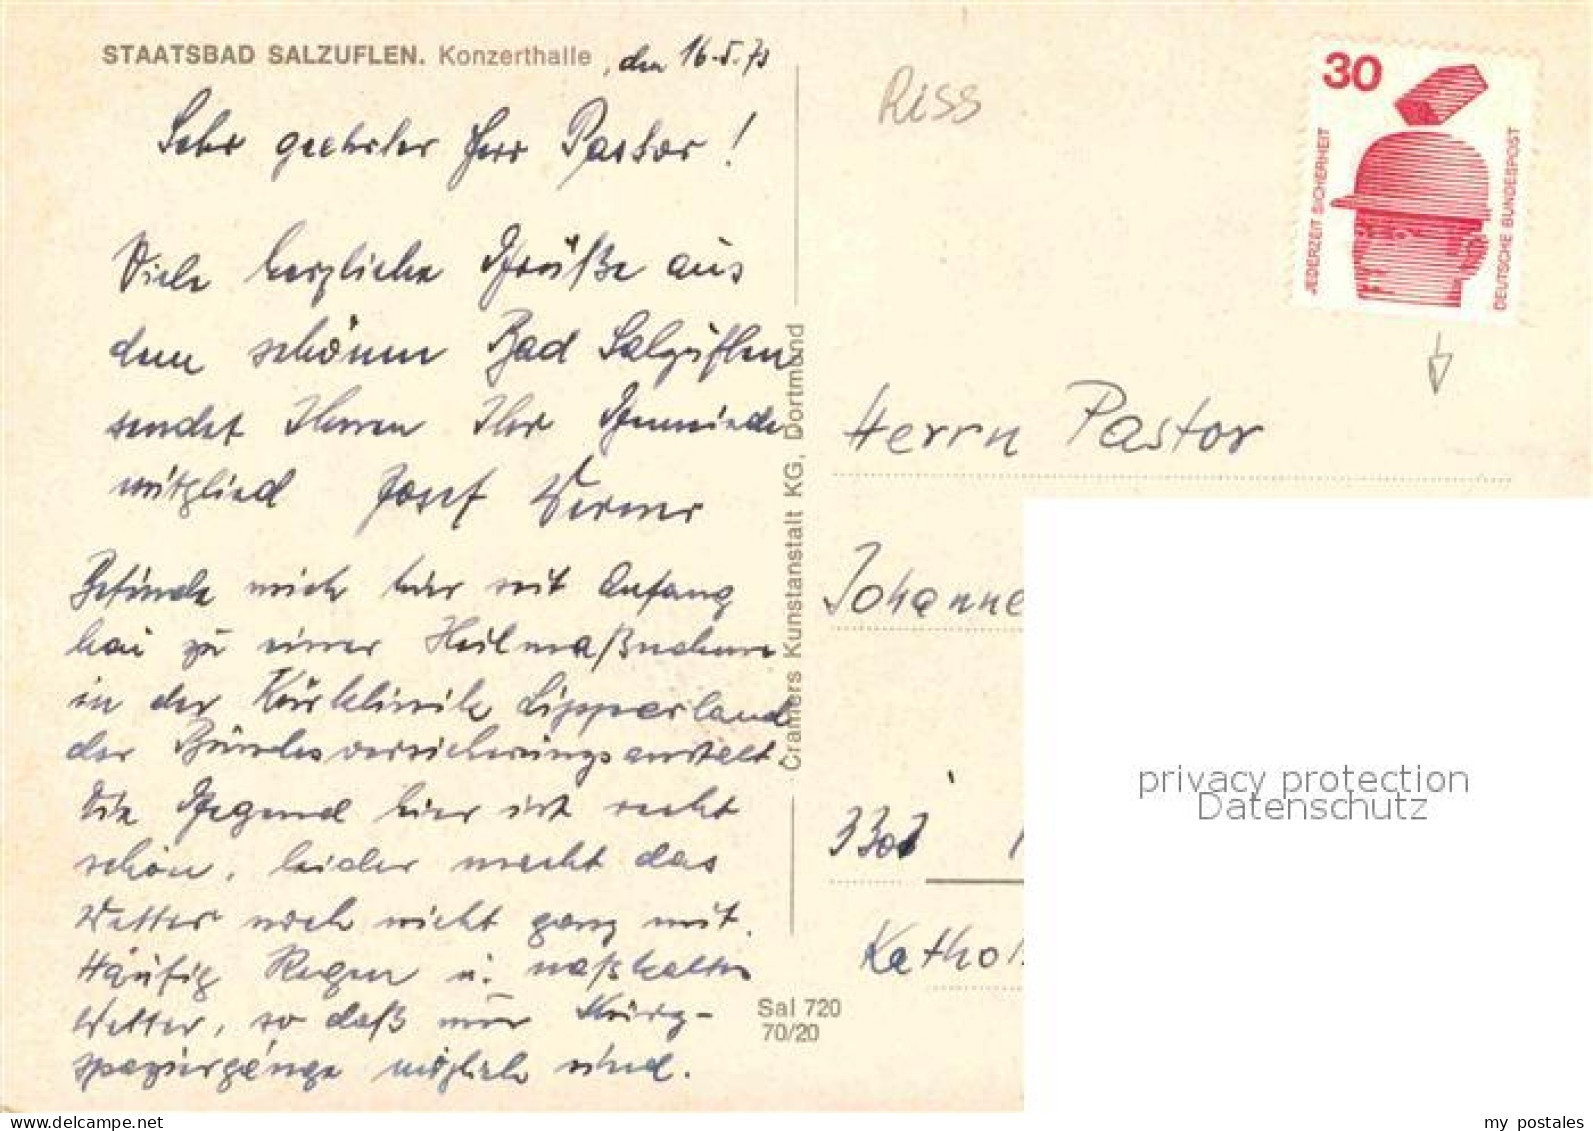 STAATSBAD SALZUFLEN. Konzerthalle, den 16.5.73
Sehr geehrter Herr Pastor!
Viele herzliche Grüße aus
dem schönen Bad Salzuflen
sendet Ihnen Ihr Gemeinde
mitglied Josef Werner
Befinde mich hier seit Anfang
Mai zu einer Heilmaßnahme
in der Kurklinik Lipperland
der Bundesversicherungsanstalt.
Die Gegend hier ist recht
schön, leider macht das
Wetter noch nicht ganz mit.
Häufig Regen u. naßkaltes
Wetter, so daß nur Kurz-
spaziergänge möglich sind.
Cramers Kunstanstalt KG, Dortmund
Sal 720
70/20
Riss
30
JEDERZEIT SICHERHEIT
DEUTSCHE BUNDESPOST
Herrn Pastor
Johanne
3307
Kathol
privacy protection
Datenschutz
my postales